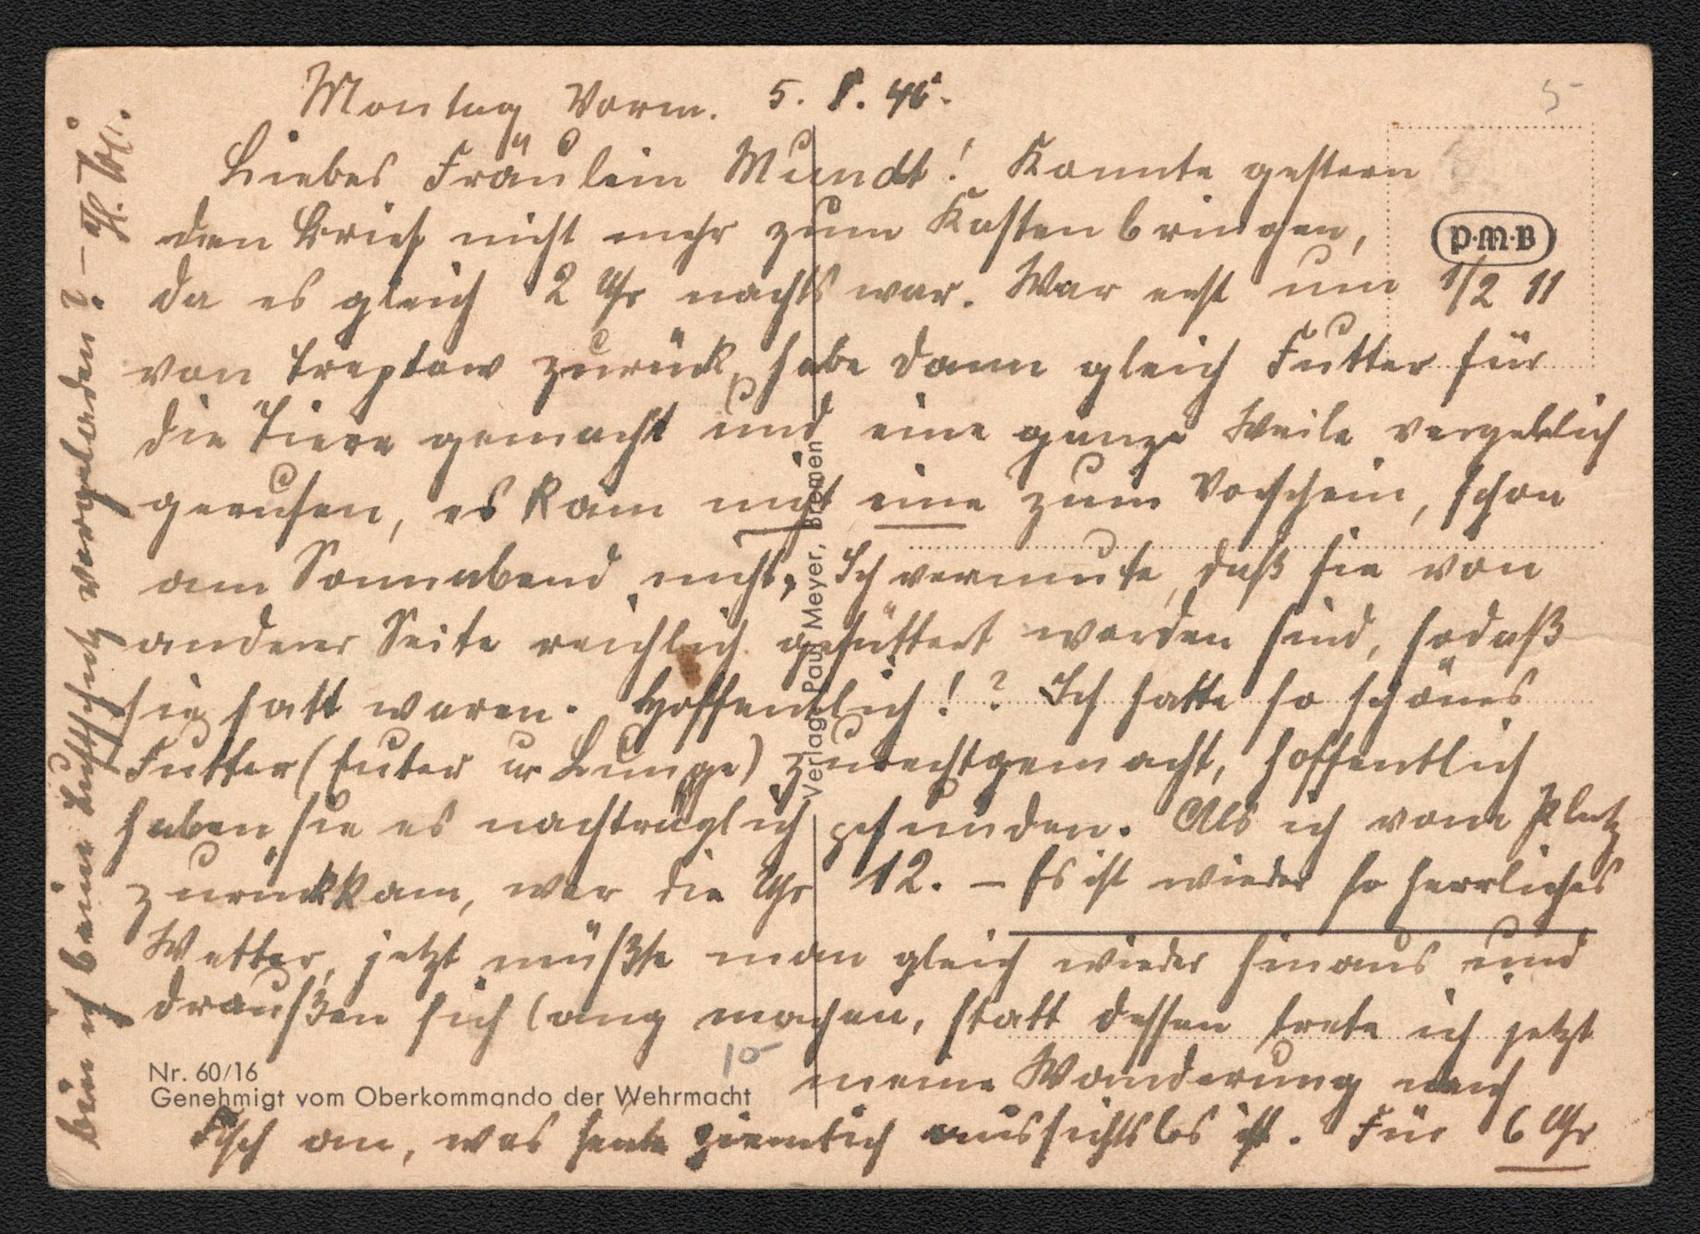 5-
Montag Vorm. 5. 8. 46.
Liebes Fräulein Mundt! Konnte gestern
den Brief nicht mehr zum Kasten bringen,
P·M·B
da es gleich 2 Uhr nachts war. War erst um 1/2 11
von Treptow zurück, habe dann gleich Futter für
die Tiere gemacht und eine ganze Weile vergeblich
gerufen, es kam nicht eine zum Vorschein, schon
am Sonnabend nicht, Ich vermute, daß sie von
anderer Seite reichlich gefüttert worden sind, sodaß
sie satt waren. Hoffentlich!? Ich hatte so schönes
Futter (Euter u Lunge) zurechtgemacht, hoffentlich
haben sie es nachträglich gefunden. Als ich vom Platz
zurückkam, war die Uhr 12. – Es ist wieder so herrliches
Wetter, jetzt müßte man gleich wieder hinaus und
draußen sich lang machen, statt dessen trete ich jetzt
10-
meine Wanderung nach
Fisch an, was heute ziemlich aussichtslos ist. Für 6 Uhr
bin ich beim Luftschutz vorgeladen?. –
Nr. 60/16
Genehmigt vom Oberkommando der Wehrmacht
Verlag: Paul Meyer, Bremen